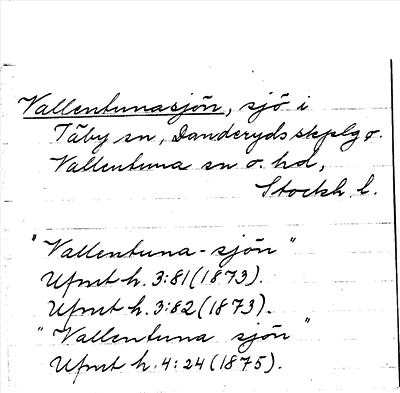 Vallentunasjön, sjö i
Täby sn, Danderyds skplg o.
Vallentuna sn o. hd,
Stockh. l.
"Vallentuna-sjön"
Ufmt h. 3:81 (1873).
Ufmt h. 3:82 (1873).
"Vallentuna sjön"
Ufmt h. 4:24 (1875).